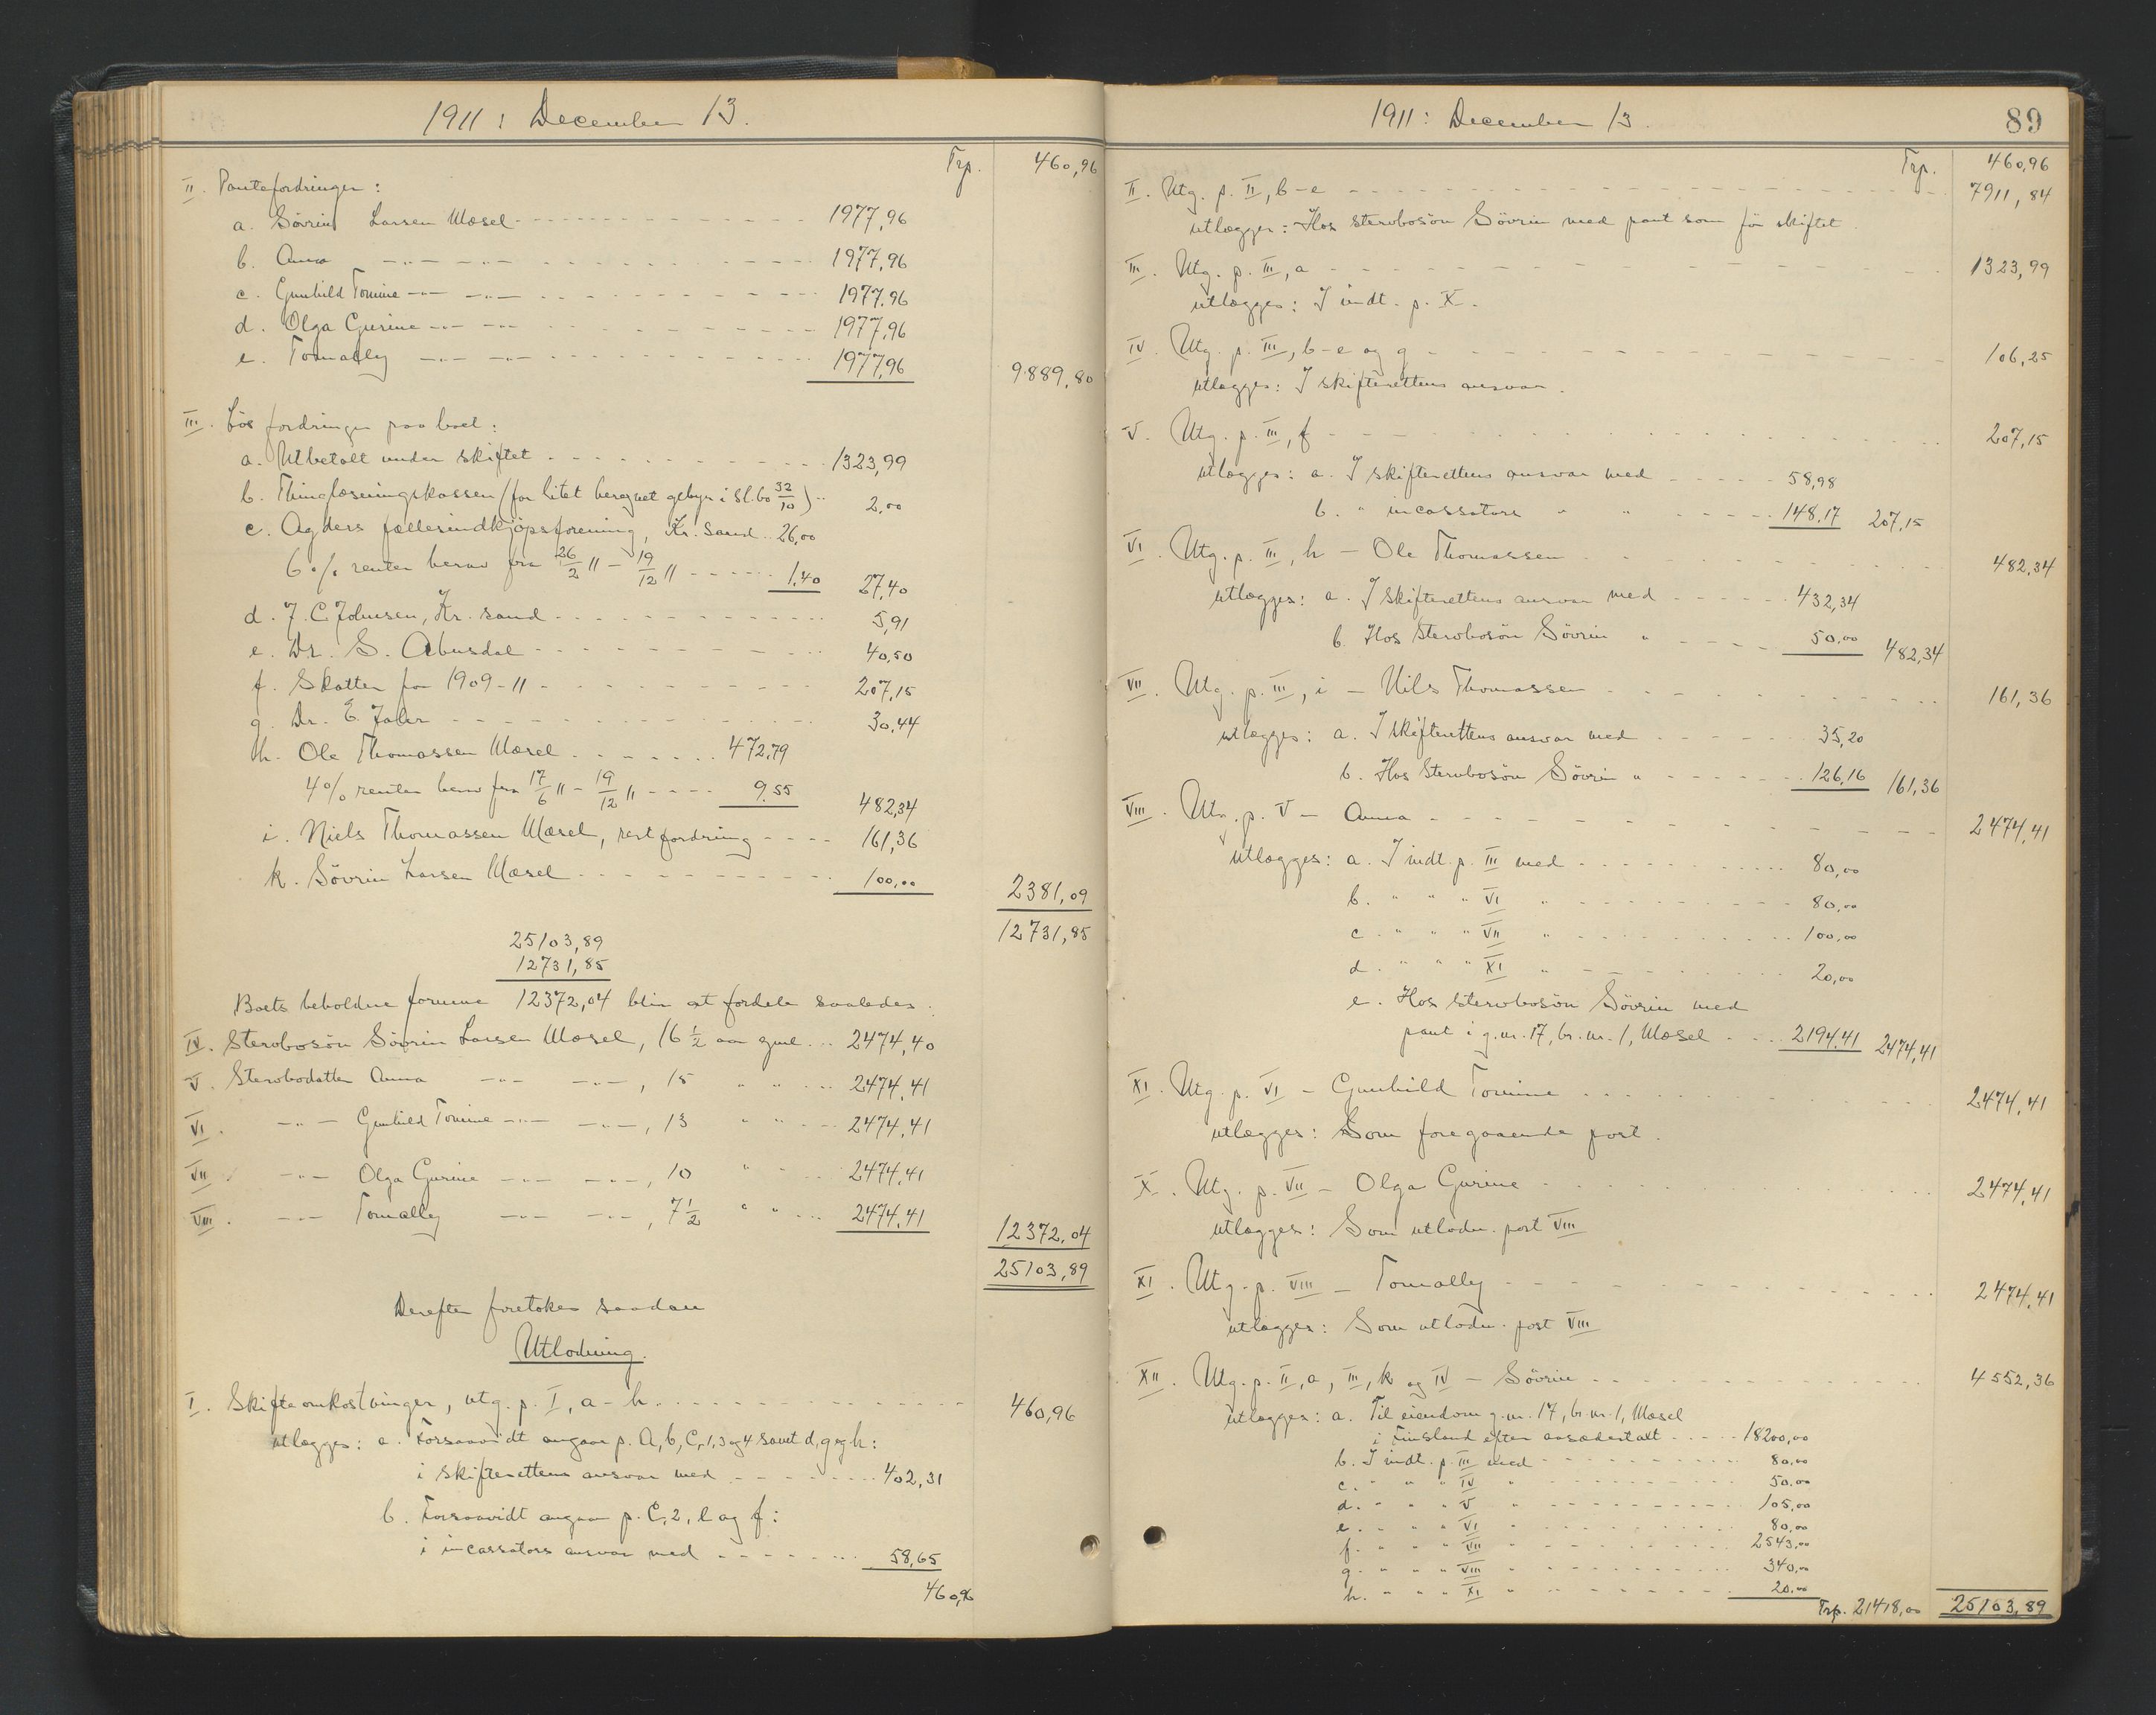 1911: December 13.
Trp. 460,96
II. Pantefordringer:
a. Sövrin Larsen Mæsel 1977,96
b. Anna —"— —"— 1977,96
c. Gunhild Tomine —"— —"— 1977,96
d. Olga Gurine —"— —"— 1977,96
e. Tomally —"— —"— 1977,96
9889,80
III. Løs fordringer paa boet:
a. Utbetalt under skiftet 1323,99
b. Thinglæsningskassen (for litet beregnet gebyr i sl.bo 32/10) 2,00
c. Agders fællesindkjøpsforening, Kr.sand 26,00
6% renter herav fra 26/2 11 – 19/12 11 1,40 27,40
d. J. C. Johnsen, Kr.sand 5,91
e. Dr. S. Abusdal 40,50
f. Skatter for 1909-11 207,15
g. Dr. E. Jaler 30,44
h. Ole Thomassen Mæsel 472,79
4% renter herav fra 17/6 11 – 19/12 11 9,55
482,34
i. Niels Thomassen Mæsel, restfordring 161,36
k. Sövrin Larsen Mæsel 100,00
2381,09
12731,85
25103,89
12731,85
Boets beholdne formue 12372,04 blir at fordele saaledes:
IV. Stervbosön Sövrin Larsen Mæsel, 16 1/2 aar gml. 2474,40
V. Stervbodatter Anna —"— —"—, 15 " " 2474,41
VI. —"— Gunhild Tomine —"— —"—, 13 " " 2474,41
VII. —"— Olga Gurine —"— —"—, 10 " 2474,41
VIII. —"— Tomally —"— —"—, 7 1/2 " " 2474,41
12372,04
25103,89
Derefter foretokes saadan
Utlodning.
I. Skifteomkostninger, utg. p. I, a-h 460,96
utlægges: a. Forsaavidt angaar p. A, b, C, 1, 3 og 4 samt d, g og h:
i skifterettens ansvar med 402,31
b. Forsaavidt angaar p. C, 2, e og f:
i incassators ansvar med 58,65
460,96
1911: December 13. 89
Trp. 460,96
II. Utg. p. II, b-e 7911,84
utlægges: Hos stervbosön Sövrin med pant som för skiftet.
III. Utg. p. III, a 1323,99
utlægges: I indt. p. X.
IV. Utg. p. III, b-e og g 106,25
utlægges: I skifterettens ansvar.
V. Utg. p. III, f 207,15
utlægges: a. I skifterettens ansvar med 58,98
b. " incassators " " 148,17 207,15
VI. Utg. p. III, h – Ole Thomassen 482,34
utlægges: a. I skifterettens ansvar med 432,34
b. Hos stervbosön Sövrin " 50,00 482,34
VII. Utg. p. III, i – Nils Thomassen 161,36
utlægges: a. I skifterettens ansvar med 35,20
b. Hos stervbosön Sövrin " 126,16 161,36
VIII. Utg. p. V – Anna 2474,41
utlægges: a. I indt. p. III med 80,00
b. " " " VI " 80,00
c. " " " VII " 100,00
d. " " " XI " 20,00
e. Hos stervbosön Sövrin med
pant i g.nr. 17, br.nr. 1, Mæsel 2194,41 2474,41
XI. Utg. p. VI – Gunhild Tomine 2474,41
utlægges: Som foregaaende post.
X. Utg. p. VII – Olga Gurine 2474,41
utlægges: Som utlodn. post VIII
XI. Utg. p. VIII – Tomally 2474,41
utlægges: Som utlodn. post VIII
XII. Utg. p. II, a, III, k og IV – Sövrin 4552,36
utlægges: a. Til eiendom g.nr. 17, br.nr. 1, Mæsel
i Finsland efter aasædestakt 18200,00
b. I indt. p. III med 80,00
c. " " " IV " 50,00
d. " " " V " 105,00
e. " " " VI " 80,00
f. " " " VII " 2543,00
g. " " " VIII " 340,00
h. " " " XI " 20,00
Trp. 21418,00 25103,89